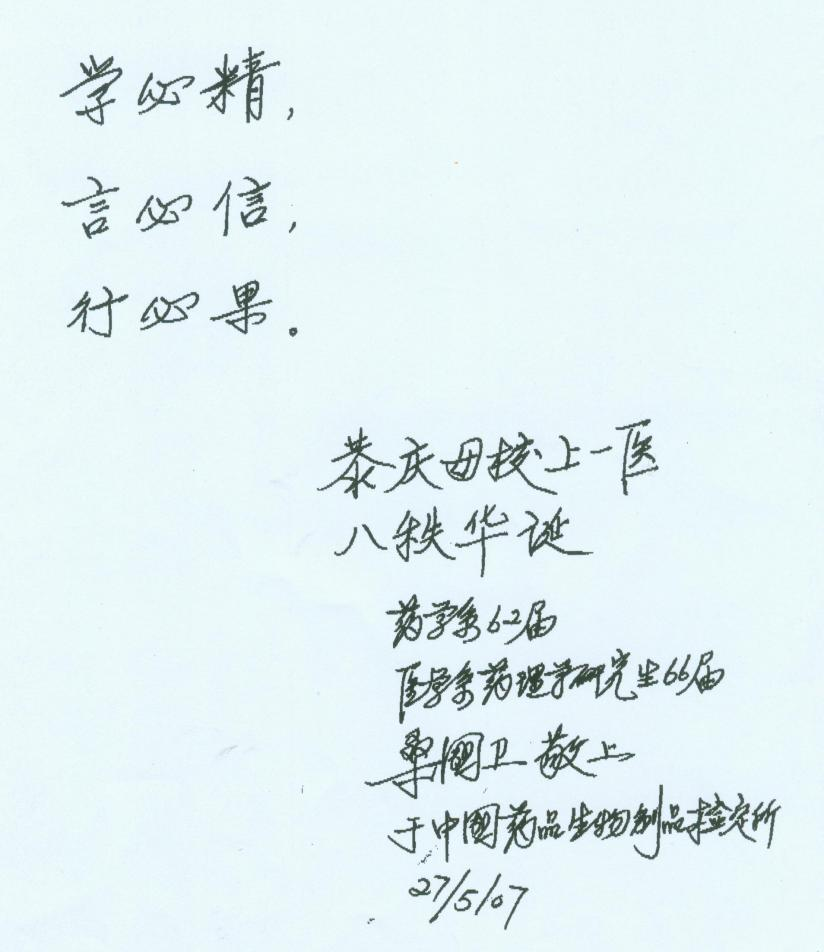 学必精,
言必信,
行必果。
恭庆母校上一医
八秩华诞
药学系62届
医学系药理学研究生66届
桑國卫 敬上
于中國药品生物制品检定所
27/5/07